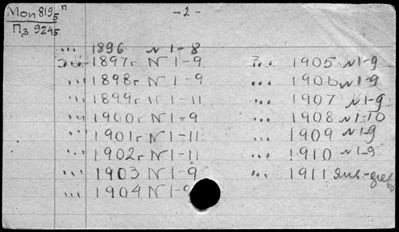 Мол 819/5 п
Пз 9245
- 2 -
,,, 1896 N 1-8
,,, 1897г N 1-9
,,, 1898г N 1-9
,,, 1899г N 1-11
,,, 1900г N 1-9
,,, 1901г N 1-11
,,, 1902г N 1-11
,,, 1903 N 1-9
,,, 1904 N 1-9
,,, 1905 N 1-9
,,, 1906 N 1-9
,,, 1907 N 1-9
,,, 1908 N 1-10
,,, 1909 N 1-9
,,, 1910 N 1-9
,,, 1911 янв-фев